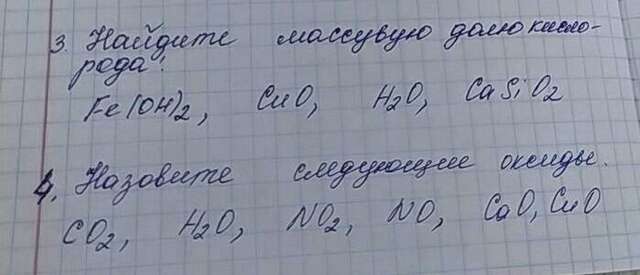 3. Найдите массувую долю кисло-
рода:
Fe(OH)2, CuO, H2O, CaSiO2
4. Назовите следующие оксиды.
CO2, H2O, NO2, NO, CaO, CuO